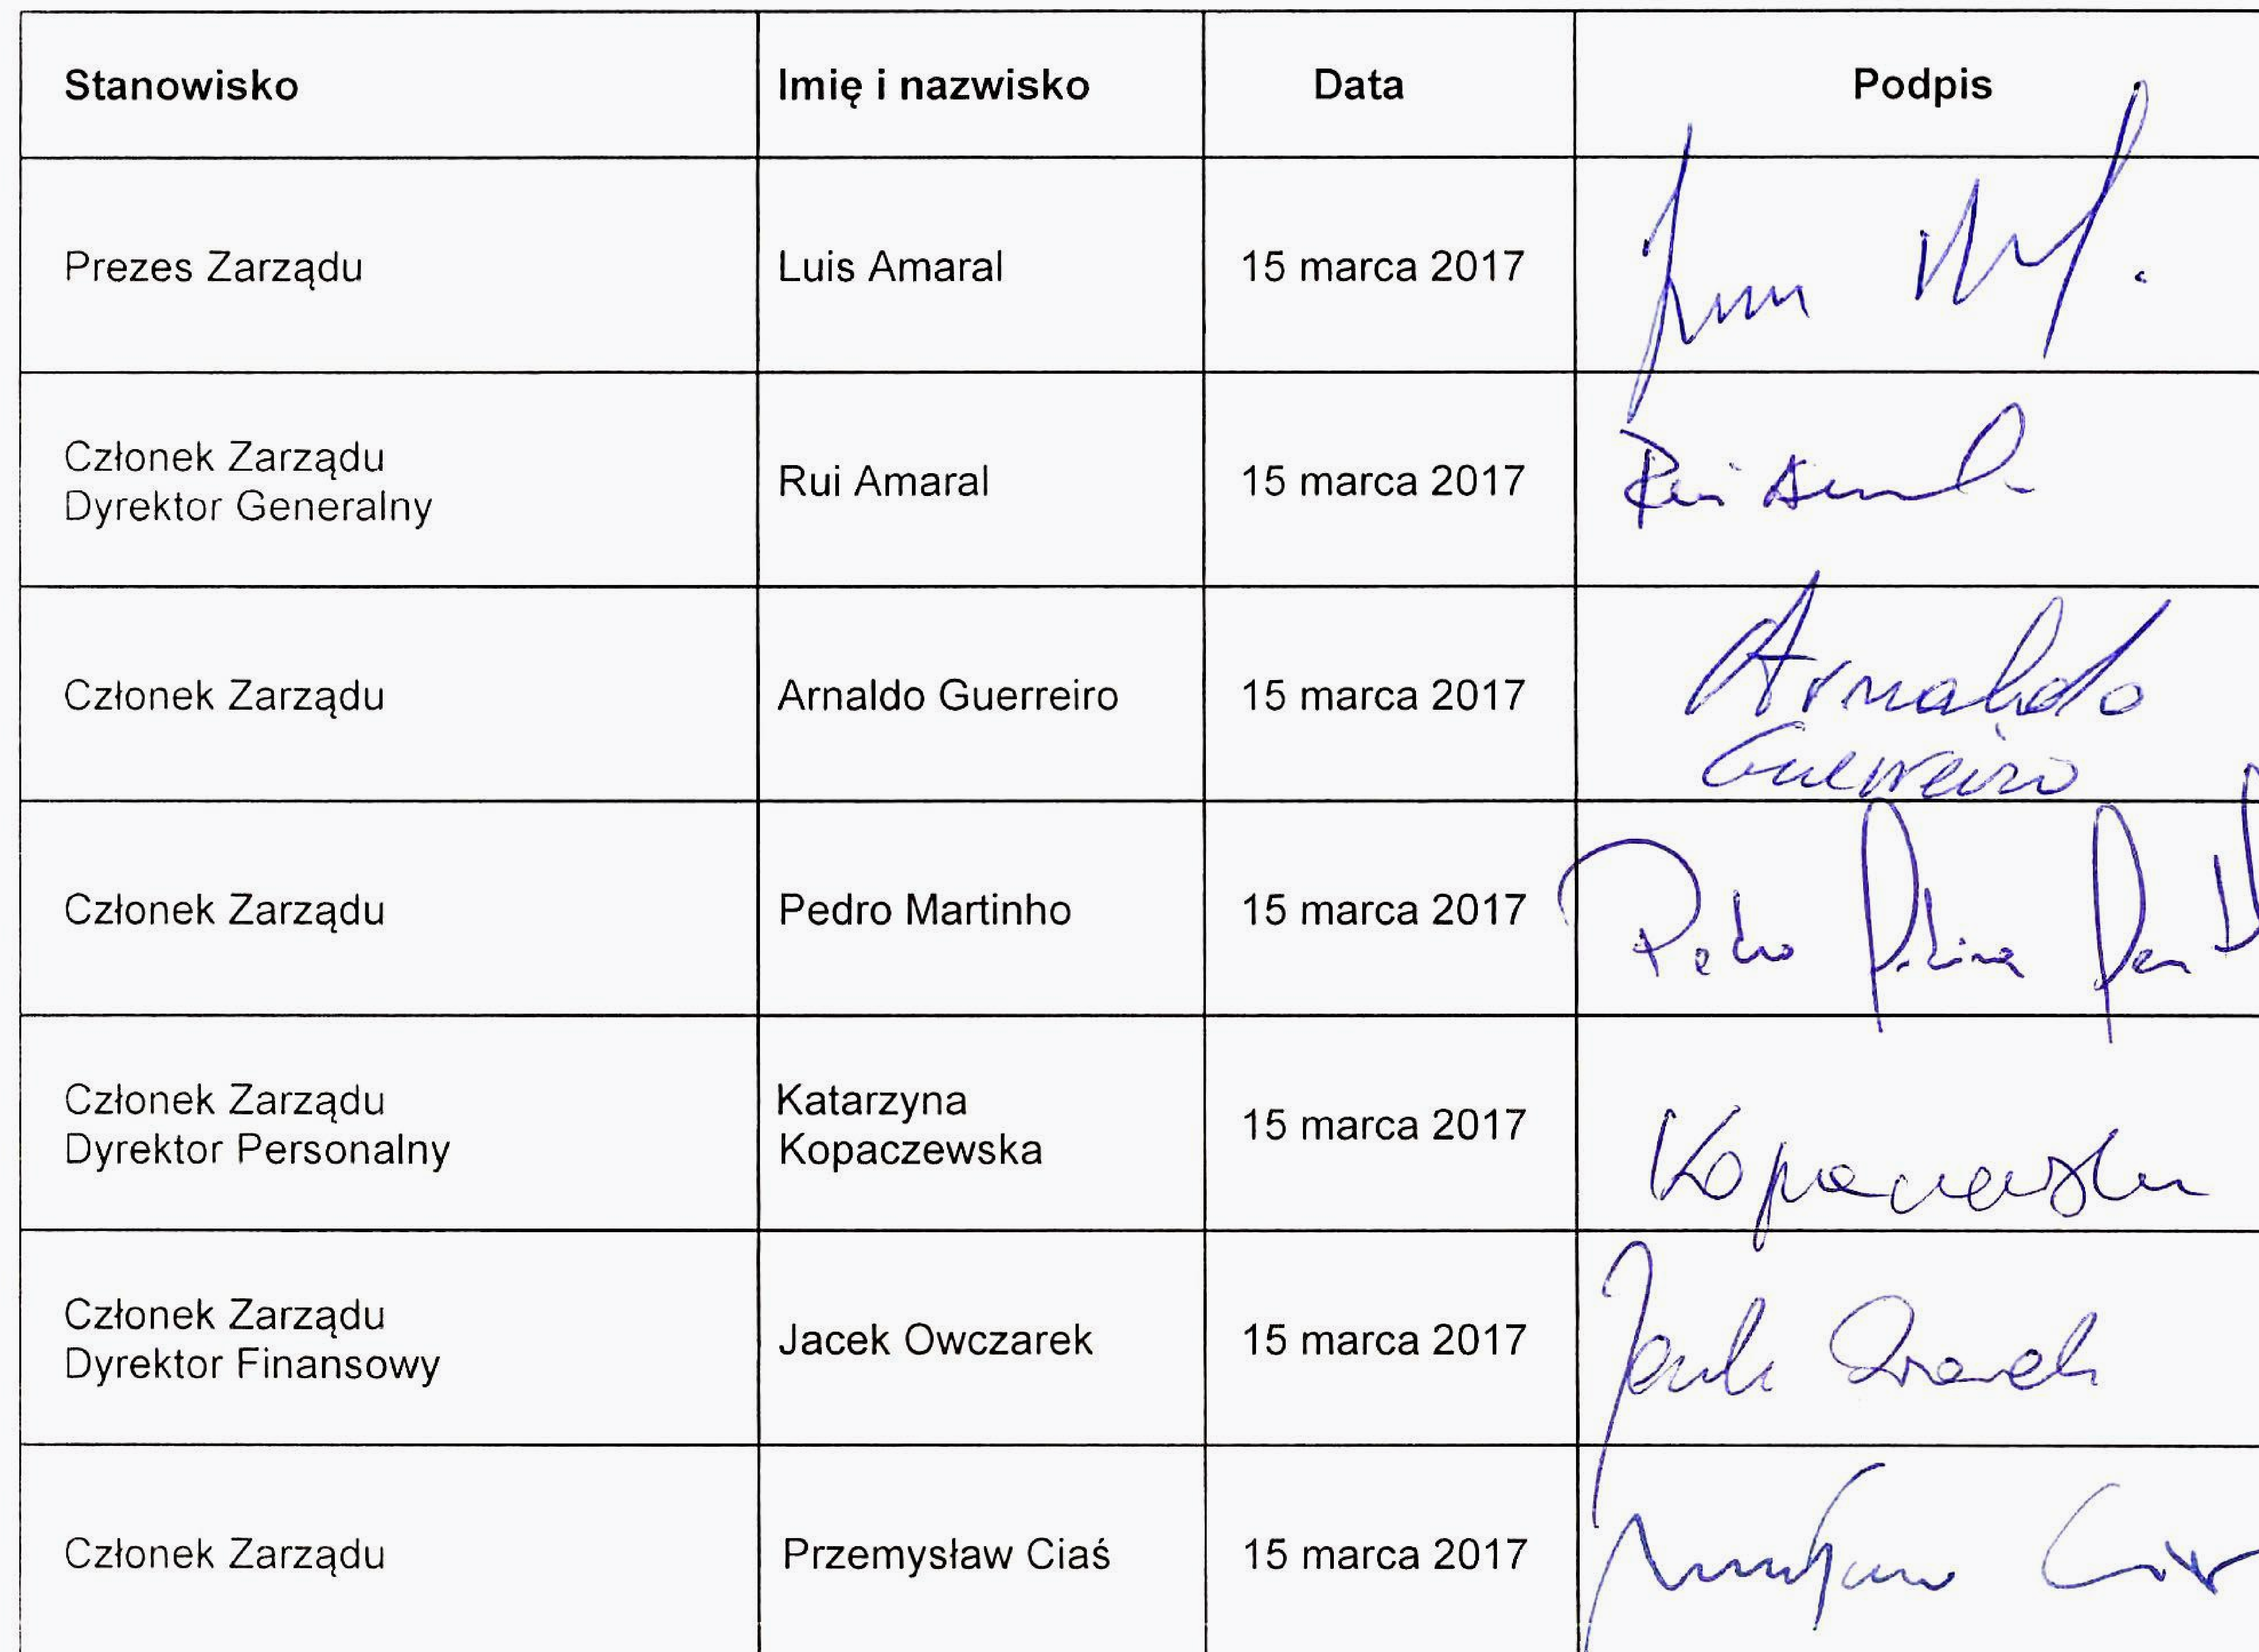 Stanowisko Imię i nazwisko Data Podpis
Prezes Zarządu Luis Amaral 15 marca 2017
Członek Zarządu
Dyrektor Generalny Rui Amaral 15 marca 2017 Rui
Członek Zarządu Arnaldo Guerreiro 15 marca 2017 Arnaldo
Guerreiro
Członek Zarządu Pedro Martinho 15 marca 2017 Pedro
Członek Zarządu
Dyrektor Personalny Katarzyna
Kopaczewska 15 marca 2017
Członek Zarządu
Dyrektor Finansowy Jacek Owczarek 15 marca 2017
Członek Zarządu Przemysław Ciaś 15 marca 2017